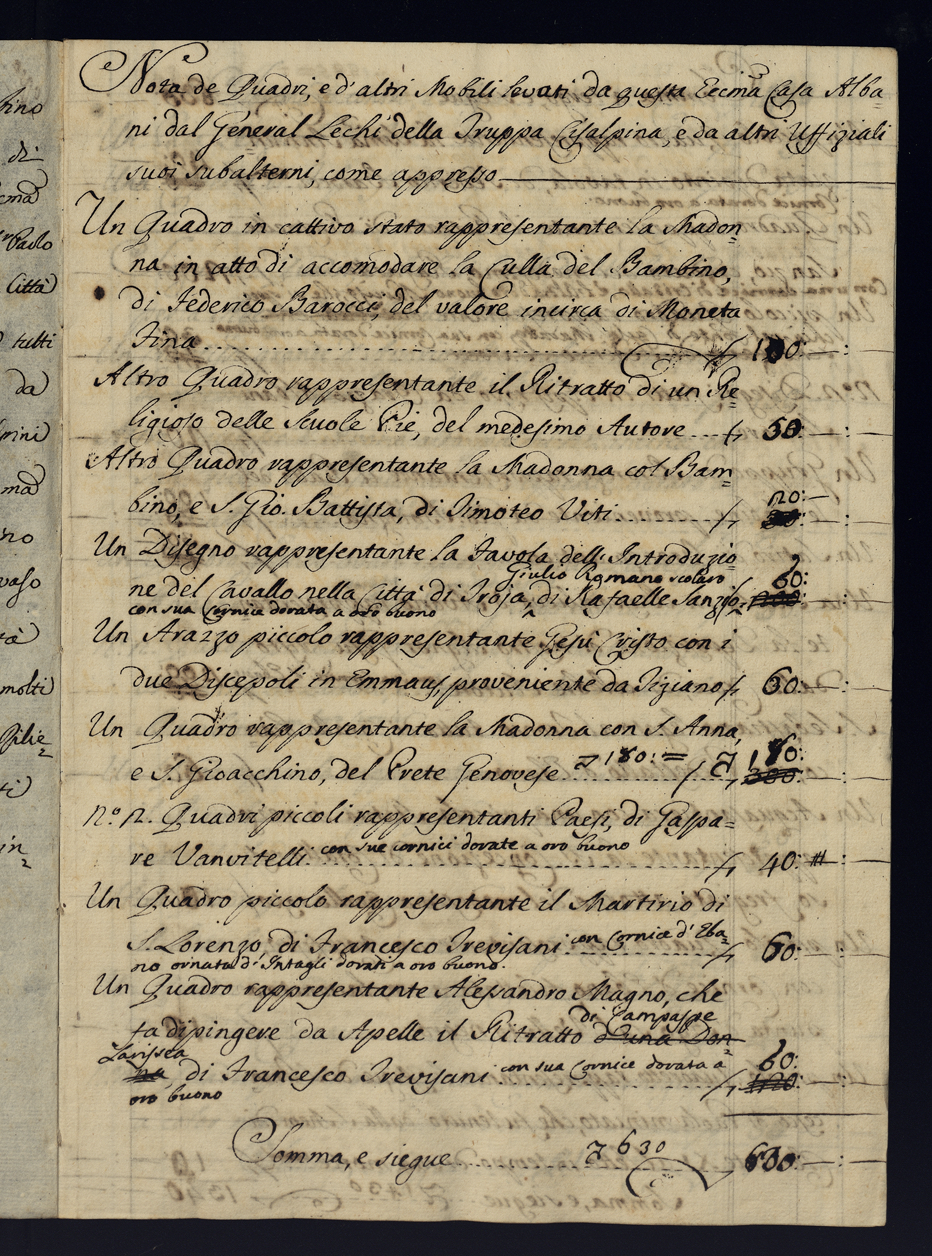 hino
di
cma
Paolo
Città
tutti
da
rini
ma
no
vaso
tà
molti
Pilie=
ti
in=
Nota de Quadri, e d'altri Mobili levati da questa Eccma Casa Alba=
ni dal General Lechi della Truppa Cisalpina, e da altri Uffiziali
suoi subalterni, come appresso
Un Quadro in cattivo stato rappresentante la Madon=
na in atto di accomodare la Culla del Bambino,
di Federico Barocci, del valore incirca di Moneta
Fina 100:—:
Altro Quadro rappresentante il Ritratto di un Re=
ligioso delle Scuole Pie, del medesimo Autore 50:—:
Altro Quadro rappresentante la Madonna col Bam=
20:—
bino, e S. Gio. Battista, di Timoteo Viti
Un Disegno rappresentante la Favola dell'Introduzio=
Giulio Romano scolaro 60:
ne del Cavallo nella Città di Troja, di Rafaelle Sanzio
con sua Cornice dorata a oro buono
Un Arazzo piccolo rappresentante Gesù Cristo con i
due Discepoli in Emmaus, proveniente da Tiziano 60:—:
Un Quadro rappresentante la Madonna con S. Anna,
180:= 180:
e S. Gioacchino, del Prete Genovese 300:
N.o 2. Quadri piccoli rappresentanti Paesi, di Gaspa=
re Vanvitelli con sue cornici dorate a oro buono 40:
Un Quadro piccolo rappresentante il Martirio di
S. Lorenzo, di Francesco Trevisani con Cornice d'Eba= 60:—:
no ornata d'Intagli dorati a oro buono.
Un Quadro rappresentante Alessandro Magno, che
di Campaspe
fa dipingere da Apelle il Ritratto d'una Don=
Larissea 60:
na di Francesco Trevisani con sua Cornice dorata a 120:
oro buono
Somma, e siegue 630 630:—: